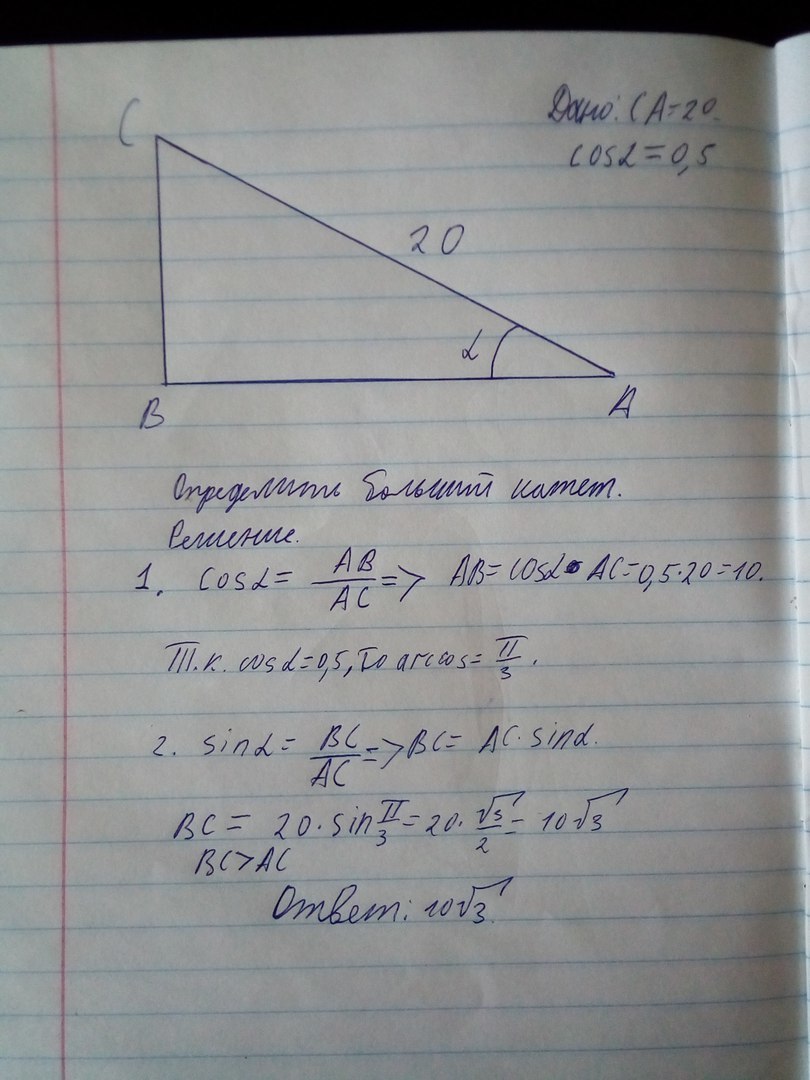 Дано: CA=20.
cosα=0,5
C
20
α
B
A
Определить больший катет.
Решение.
1. cosα= AB/AC => AB= cosα• AC=0,5·20=10.
Т.к. cosα=0,5, то arccos= π/3.
2. sinα= BC/AC => BC= AC·sinα.
BC= 20·sin π/3=20· √3/2= 10√3
BC>AC
Ответ: 10√3.